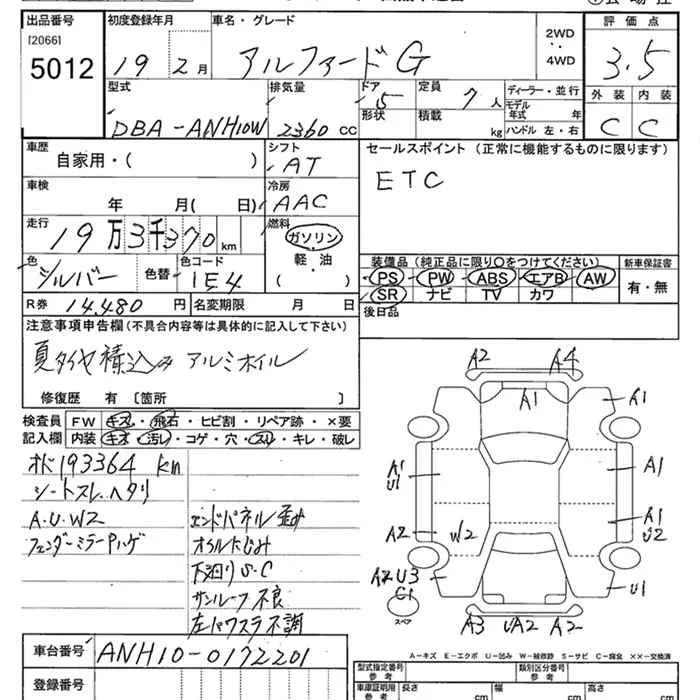 出品番号 初度登録年月 車名・グレード 2WD ・・ 4WD 評価点
[2066] 5012 19 2月 アルファードG 3.5
型式 排気量 ドア 定員 ディーラー・並行 外装 内装
DBA-ANH10W 2360 CC 5 7人 モデル年式 年 C C
形状 積載 kg ハンドル 左・右
車歴 シフト セールスポイント (正常に機能するものに限ります)
自家用・( ) AT ETC
車検 冷房
年 月( 日) AAC
走行 燃料
19万3千370km ガソリン
軽・油
( )
色 色替 色コード
シルバー 1E4
装備品 (純正品に限り○をつけてください) 新車保証書
PS・PW・ABS・エアB・AW 有・無
SR・ナビ・TV・カワ
R券 14,480円 名変期限 月 日
後日品
注意事項申告欄 (不具合内容等は具体的に記入して下さい)
夏タイヤ積込み アルミホイル
修復歴 有〔箇所
検査員 FW キズ・飛石・ヒビ割・リペア跡・×要
記入欄 内装 キズ・汚れ・コゲ・穴・スレ・キレ・破レ
オド193364 km
シートスレ、ヘタリ
A.U.W2
フェンダーミラーPハゲ
エンドパネル歪み
オイルにじみ
下廻りS・C
サンルーフ不良
左パワスラ不調
A2 A4
A1 A1
A1 U1 A1
A2 W2 A1 U2
A2 U3 C1 U1
スペア
A3 UA2 A2
A-キズ E-エクボ U-凹み W-補修跡 S-サビ C-腐食 ××-交換済
車台番号 ANH10-0172201
登録番号
型式指定番号 類別区分番号
車庫証明用 長さ cm 幅 cm 高さ cm